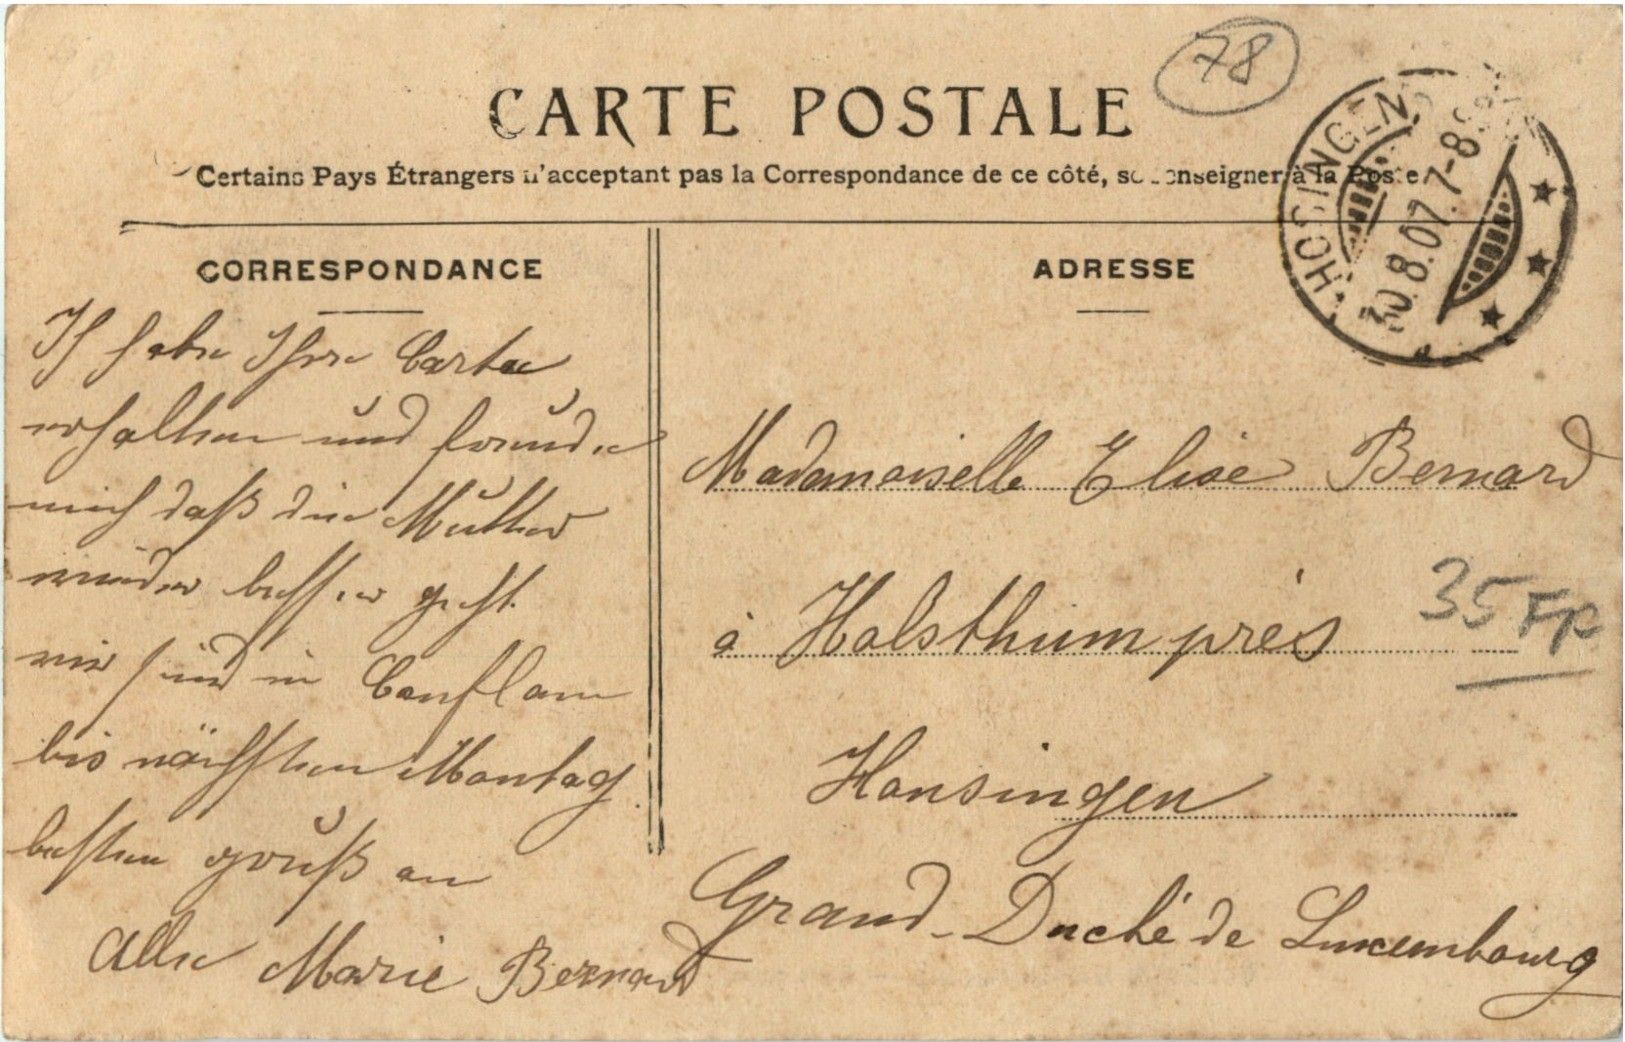 78
CARTE POSTALE
Certains Pays Étrangers n'acceptant pas la Correspondance de ce côté, se renseigner à la Poste
HOSINGEN
30.8.07. 7-8
CORRESPONDANCE
Ich habe Ihre Carte
erhalten und freude
mich daß die Mutter
wieder besser geht
wir sind in Conflans
bis nächsten Montag
besten gruß an
Alle Marie Bernard
ADRESSE
Mademoiselle Elise Bernard
à Holsthum près
Honsingen
Grand-Duché de Luxembourg
35 FR